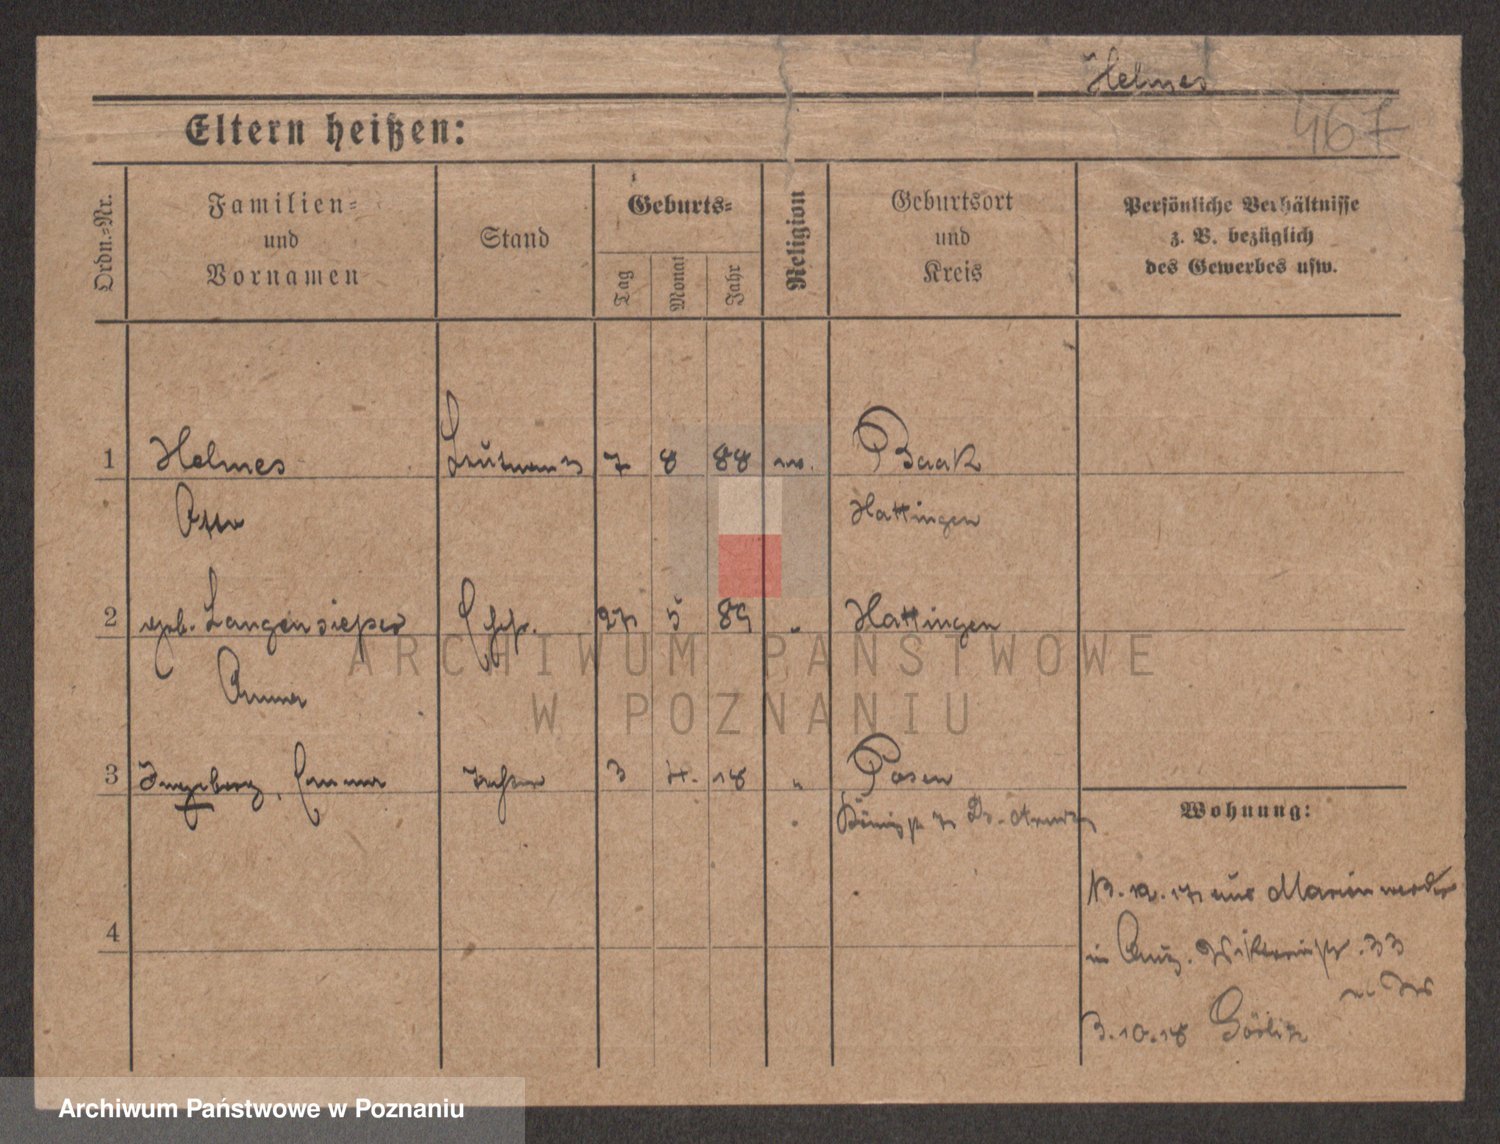 Helmes
467
Eltern heißen:
Ordn.-Nr.
Familien-
und
Vornamen
Stand
Geburts-
Tag
Monat
Jahr
Religion
Geburtsort
und
Kreis
Persönliche Verhältnisse
z. B. bezüglich
des Gewerbes usw.
1 Helmes Leutnant 7 8 88 ev. Baak
Otto Hattingen
2 geb. Langensieper Ehefr. 27 5 89 " Hattingen
Anna
3 Ingeborg, Emma Tochter 3 4. 18 " Posen
Wohnung:
4
3.12.17 aus Marienwerder
in 33
3.10.18 Görlitz
ARCHIWUM PAŃSTWOWE
W POZNANIU
Archiwum Państwowe w Poznaniu